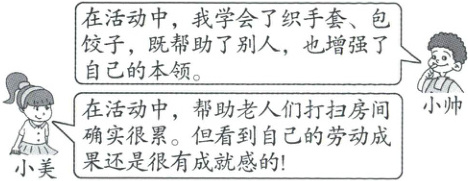 在活动中，我学会了织手套、包
饺子，既帮助了别人，也增强了
自己的本领。
小帅
在活动中，帮助老人们打扫房间
确实很累。但看到自己的劳动成
果还是很有成就感的!
小美